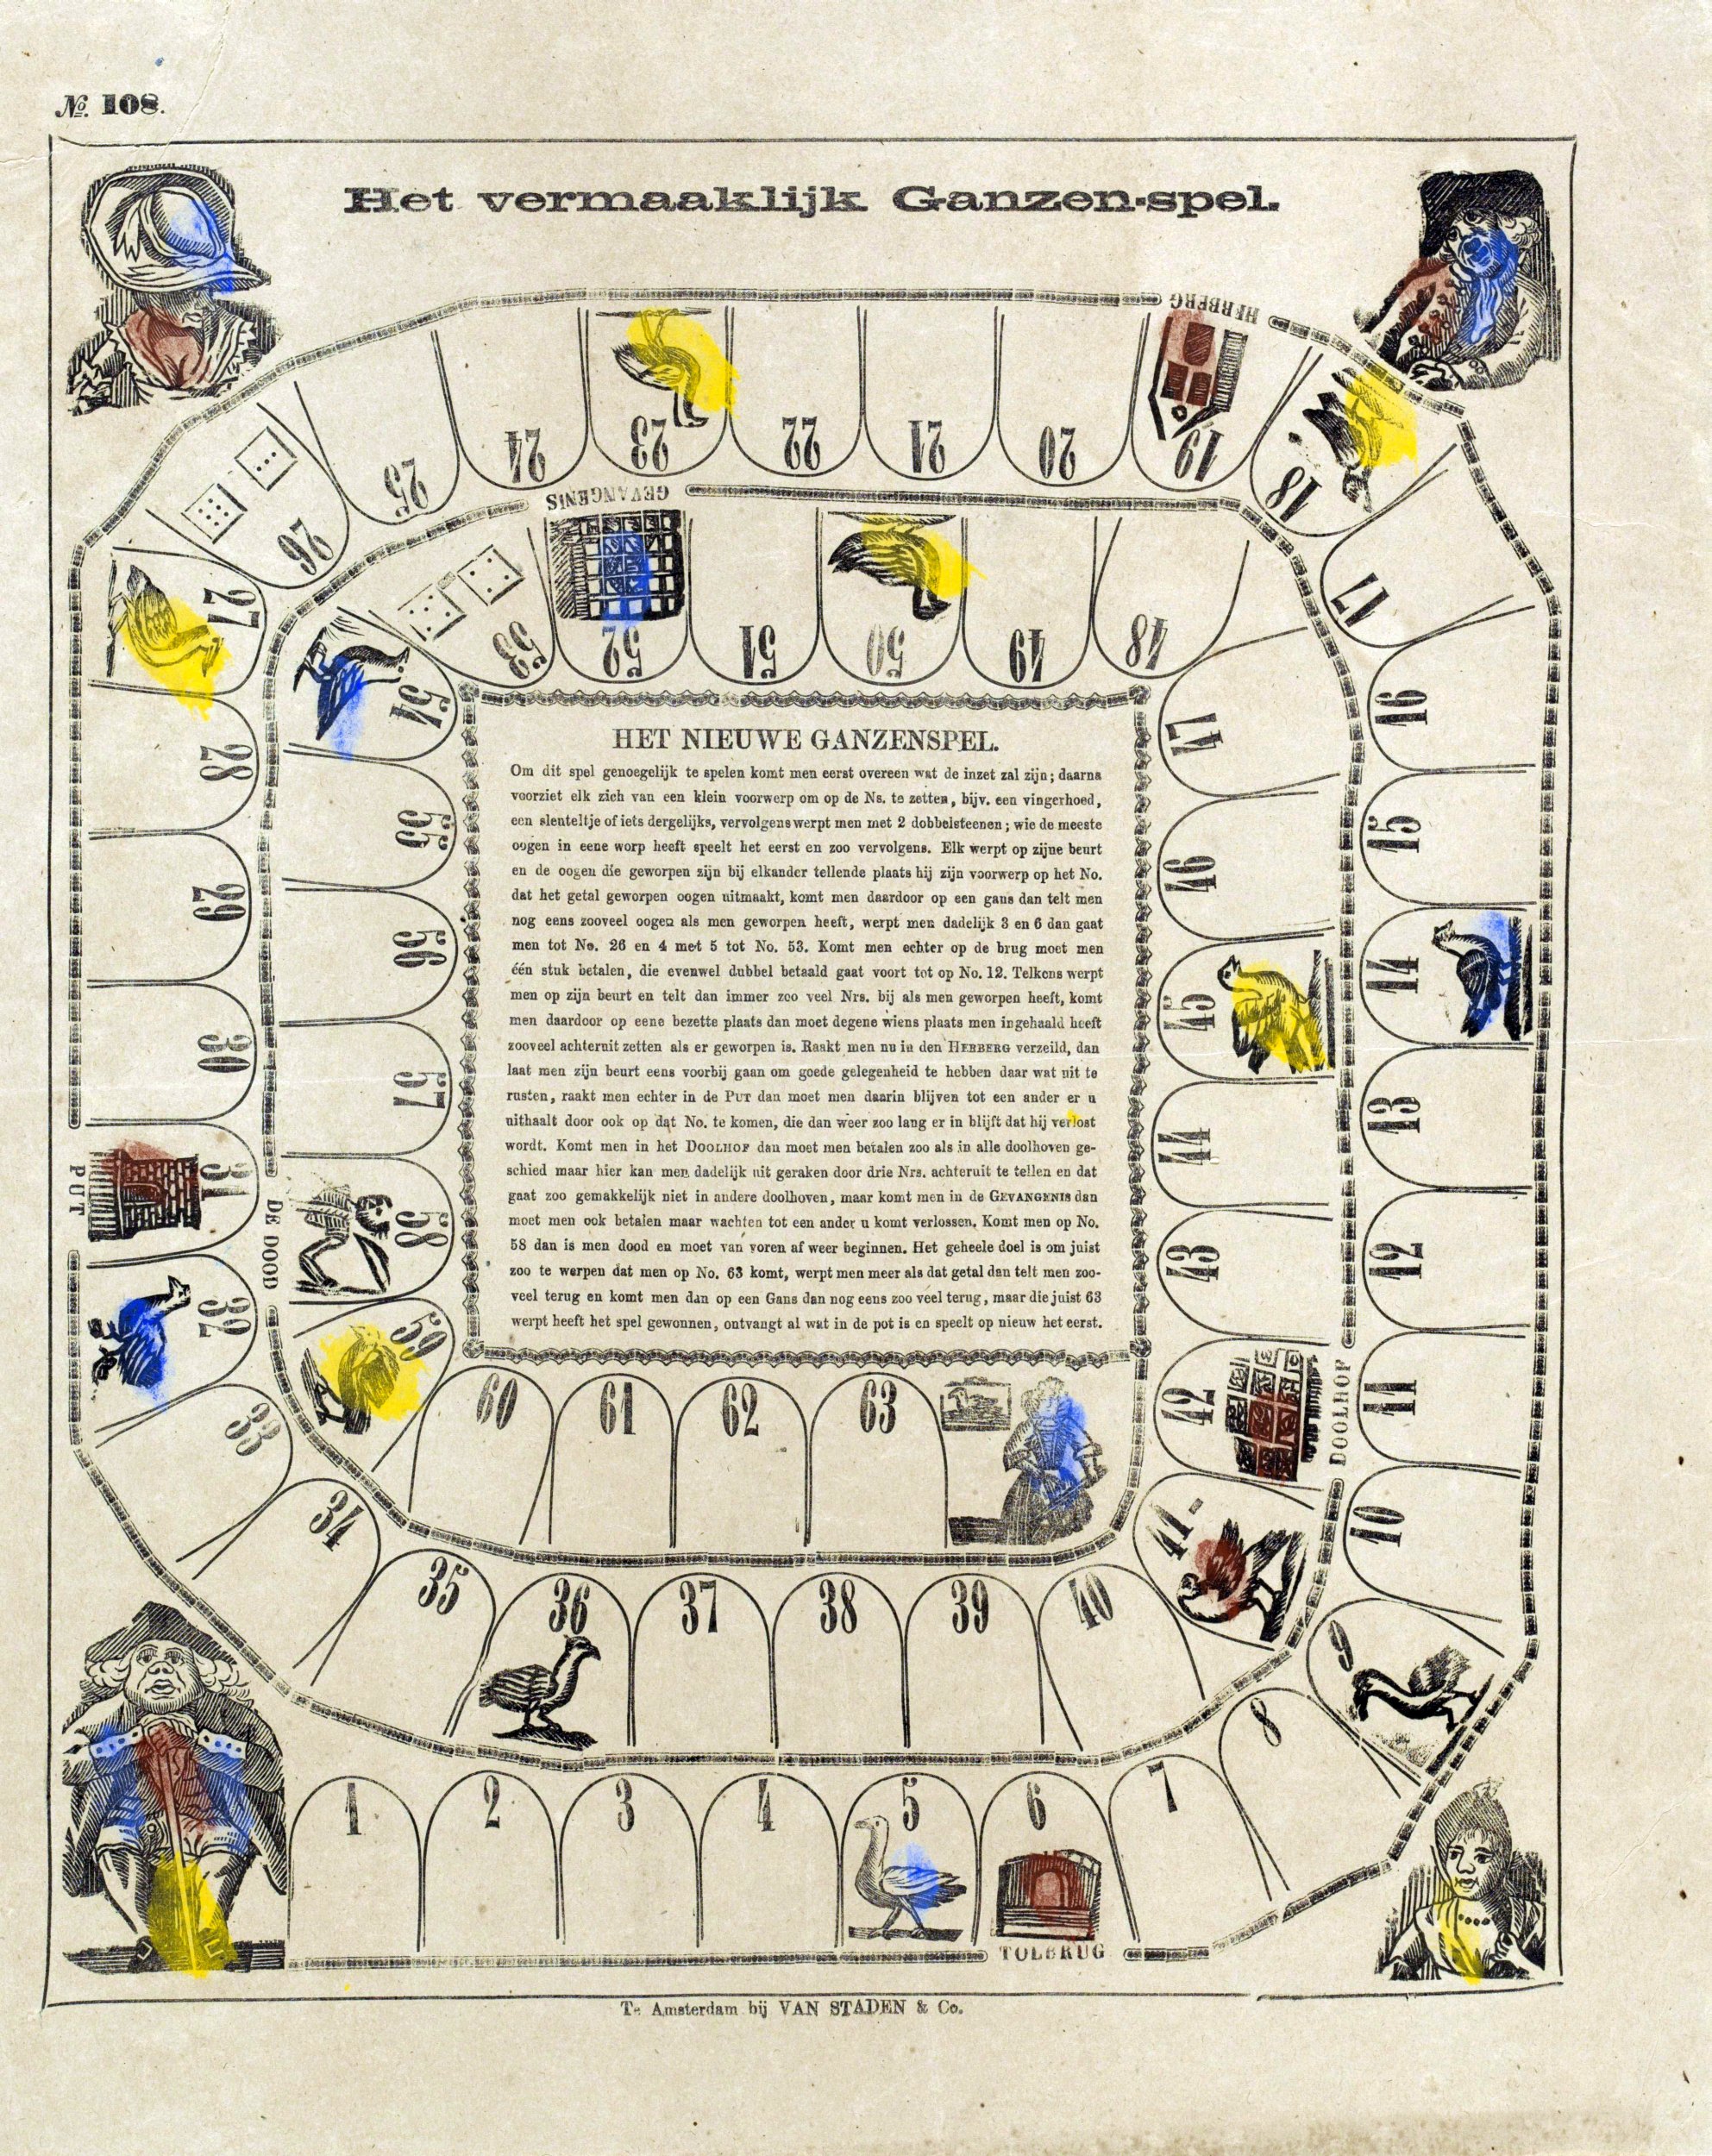 №. 108.
Het vermaaklijk Ganzen-spel.
HERBERG
24
23
22
21
20
19
18
25
26
GEVANGENIS
17
27
53
52
51
50
49
48
54
16
28
47
55
15
29
46
56
14
30
45
57
13
31
PUT
44
58
DE DOOD
12
32
43
59
11
33
42
DOOLHOF
10
HET NIEUWE GANZENSPEL.
Om dit spel genoegelijk te spelen komt men eerst overeen wat de inzet zal zijn; daarna
voorziet elk zich van een klein voorwerp om op de Ns. te zetten, bijv. een vingerhoed,
een slenteltje of iets dergelijks, vervolgens werpt men met 2 dobbelsteenen; wie de meeste
oogen in eene worp heeft speelt het eerst en zoo vervolgens. Elk werpt op zijne beurt
en de oogen die geworpen zijn bij elkander tellende plaats hij zijn voorwerp op het No.
dat het getal geworpen oogen uitmaakt, komt men daardoor op een gans dan telt men
nog eens zooveel oogen als men geworpen heeft, werpt men dadelijk 3 en 6 dan gaat
men tot No. 26 en 4 met 5 tot No. 53. Komt men echter op de brug moet men
één stuk betalen, die evenwel dubbel betaald gaat voort tot op No. 12. Telkens werpt
men op zijn beurt en telt dan immer zoo veel Nrs. bij als men geworpen heeft, komt
men daardoor op eene bezette plaats dan moet degene wiens plaats men ingehaald heeft
zooveel achteruit zetten als er geworpen is. Raakt men nu in den HERBERG verzeild, dan
laat men zijn beurt eens voorbij gaan om goede gelegenheid te hebben daar wat uit te
rusten, raakt men echter in de PUT dan moet men daarin blijven tot een ander er u
uithaalt door ook op dat No. te komen, die dan weer zoo lang er in blijft dat hij verlost
wordt. Komt men in het DOOLHOF dan moet men betalen zoo als in alle doolhoven ge-
schied maar hier kan men dadelijk uit geraken door drie Nrs. achteruit te tellen en dat
gaat zoo gemakkelijk niet in andere doolhoven, maar komt men in de GEVANGENIS dan
moet men ook betalen maar wachten tot een ander u komt verlossen. Komt men op No.
58 dan is men dood en moet van voren af weer beginnen. Het geheele doel is om juist
zoo te werpen dat men op No. 63 komt, werpt men meer als dat getal dan telt men zoo-
veel terug en komt men dan op een Gans dan nog eens zoo veel terug, maar die juist 63
werpt heeft het spel gewonnen, ontvangt al wat in de pot is en speelt op nieuw het eerst.
60
61
62
63
34
41
35
36
37
38
39
40
9
8
1
2
3
4
5
6
7
TOLBRUG
Te Amsterdam bij VAN STADEN & Co.